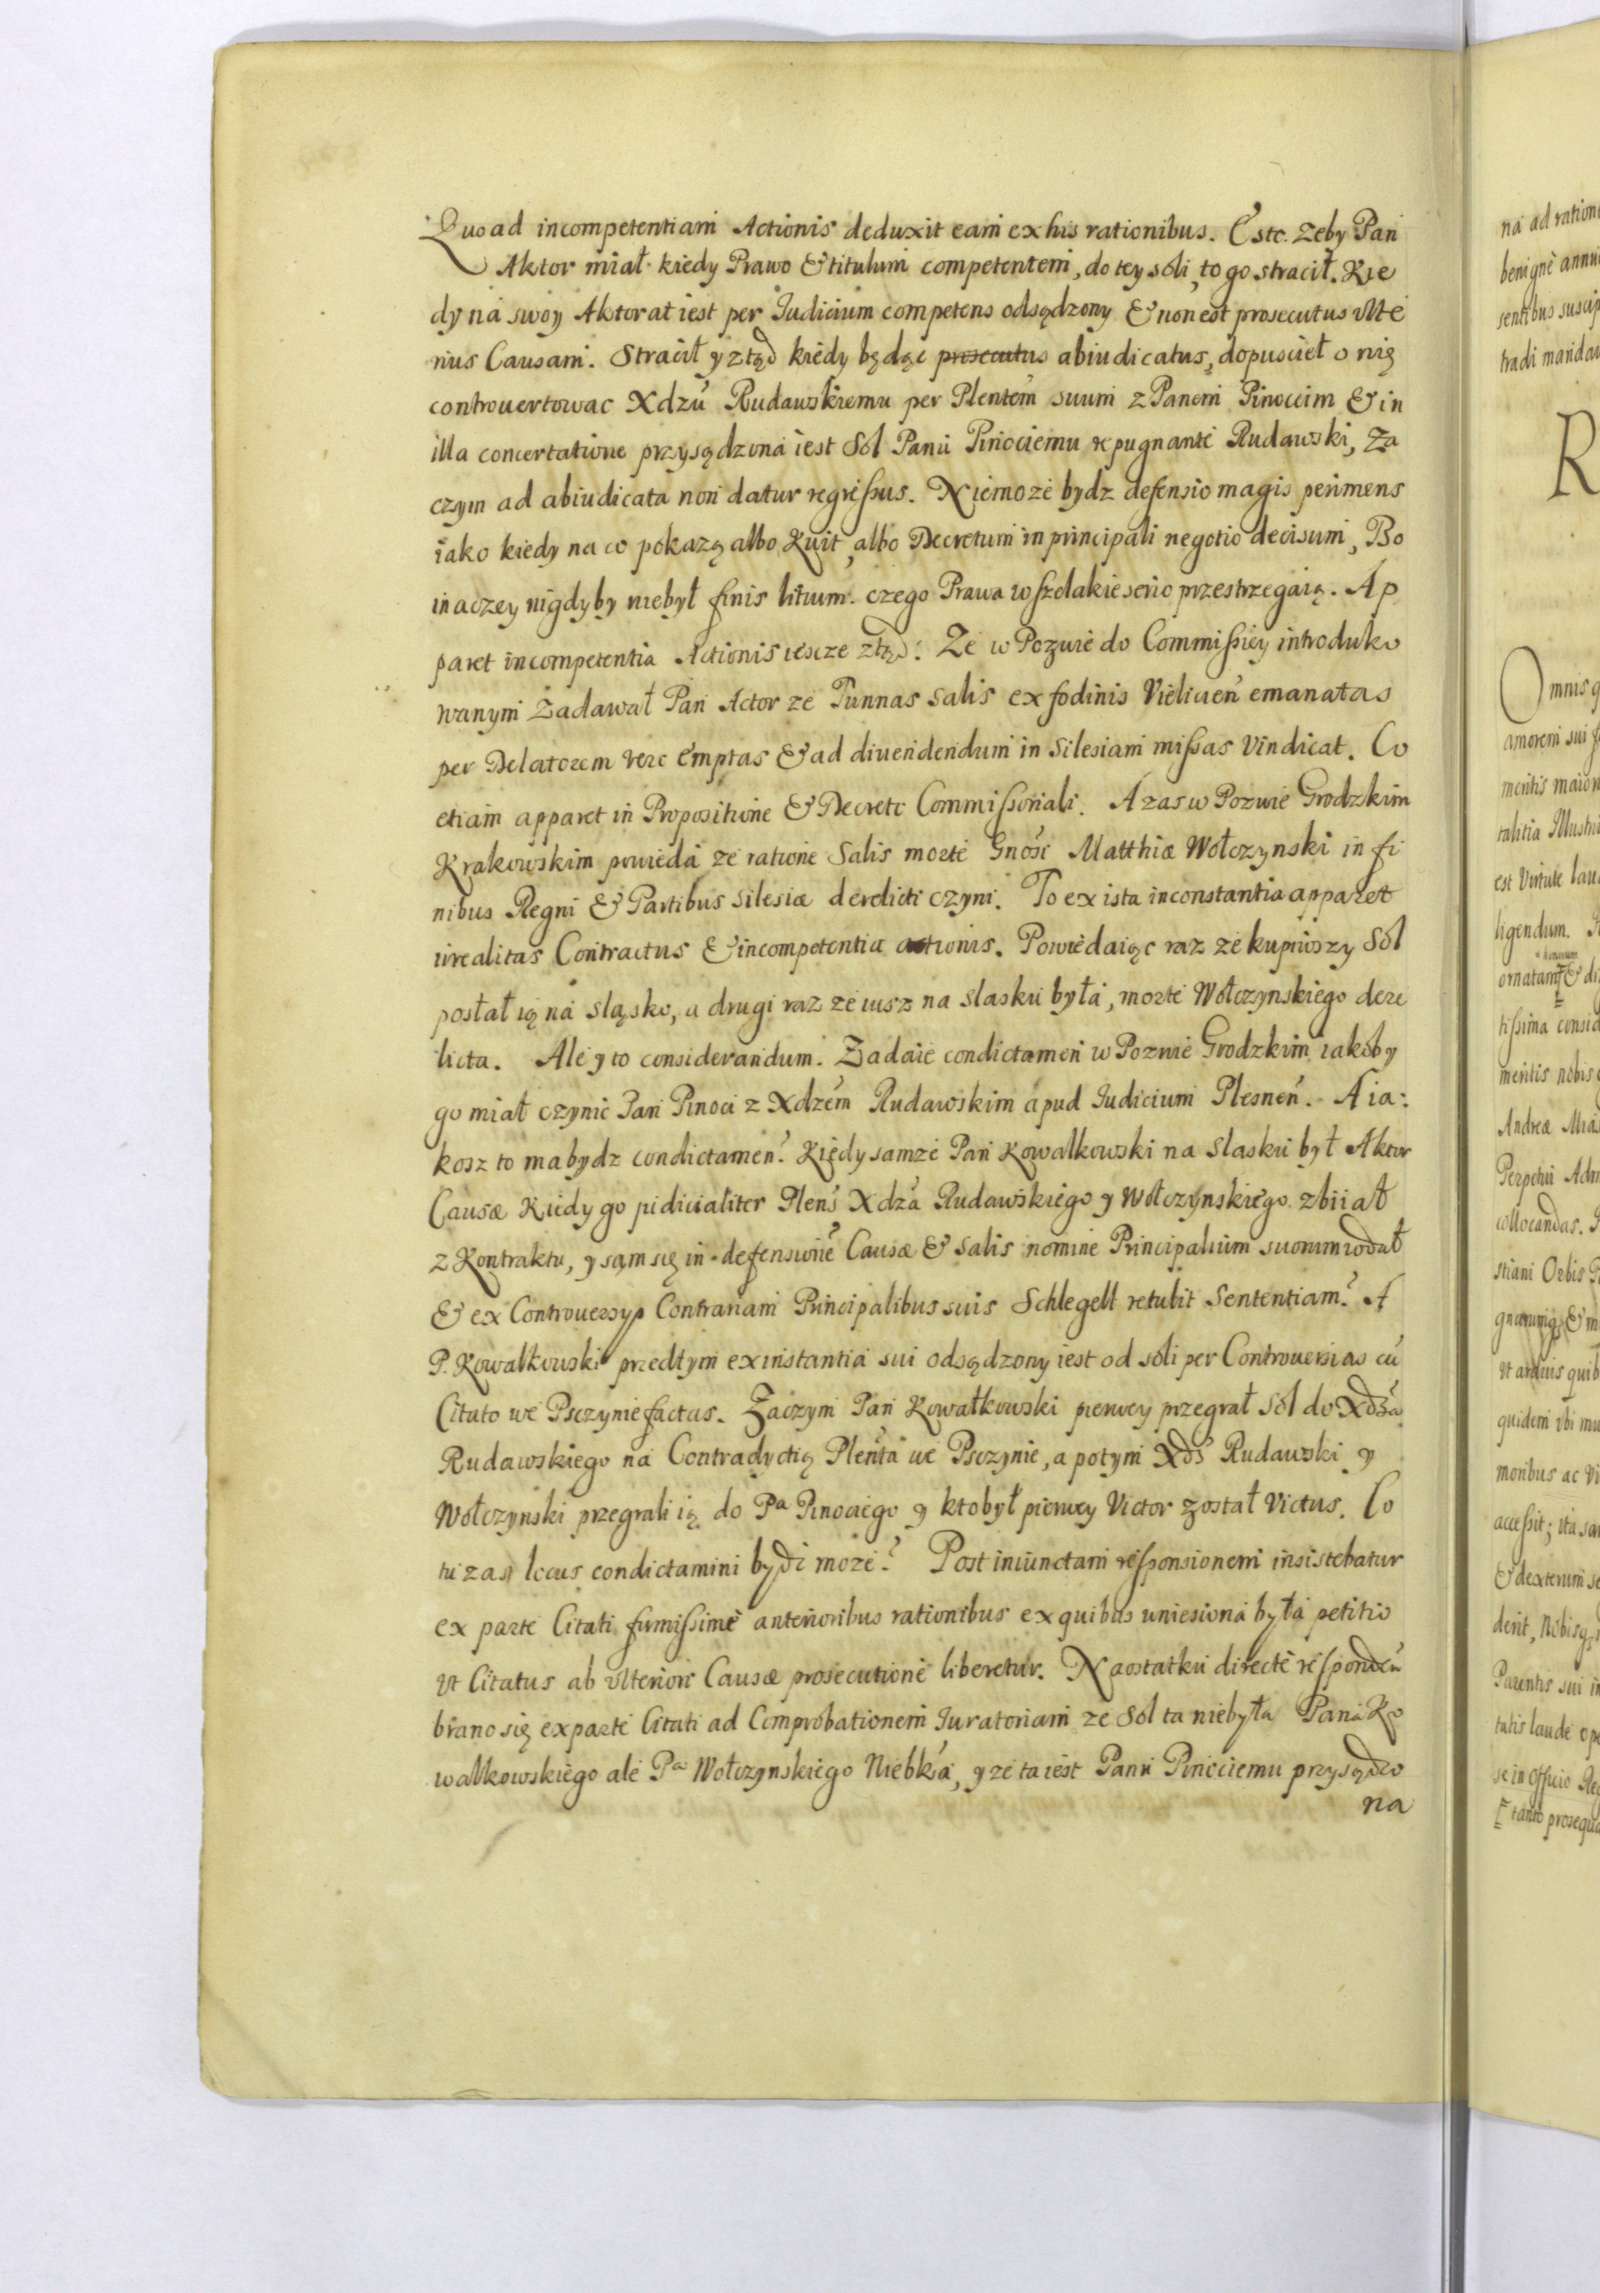 Quo ad incompetentiam Actionis deduxit eam ex his rationibus. Esto. Zeby Pan
Aktor miał kiedy Prawo & titulum competentem, do tey soli, to go stracił. Kie
dy na swoy Aktorat iest per Iudicium competens odsądzony & non est prosecutus Vlte
rius Causam. Stracił y ztąd kiedy będąc prosecutus abiudicatus, dopusciel o nię
controuertowac Xdzu Rudawskiemu per Plentem suum z Panem Pinoccim & in
illa concertatione przysądzona iest Sól Panu Pinociemu repugnante Rudawski, Za
czym ad abiudicata non datur regressus. Niemoze bydz defensio magis perimens
iako kiedy na co pokazą albo Kwit, albo Decretum in principali negotio decisum, Bo
inaczey nigdyby niebył finis litium. czego Prawa wszelakie serio przestrzegaią. Ap
paret incompetentia Actionis iescze ztąd: Ze w Pozwie do Commissiey introduko
wanym Zadawał Pan Actor ze Tunnas salis ex fodinis Vielicien emanatas
per Delatorem vere emptas & ad diuendendum in Silesiam missas Vindicat. Co
etiam apparet in Propositione & Decreto Commissoriali. A zas w Pozwie Grodzkim
Krakowskim powieda ze ratione Salis morte Gnosi Matthiæ Wołczynski in fi
nibus Regni & Partibus Silesiæ derelicti czyni. To ex ista inconstantia apparet
irrealitas Contractus & incompetentia actionis. Powiedaiąc raz ze kupiwszy Sól
posłał ią na sląsko, a drugi raz ze iusz na slasku była, morte Wołczynskiego dere
licta. Ale y to considerandum. Zadaie condictamen w Pozwie Grodzkim iakoby
go miał czynic Pan Pinoci z Xdzem Rudawskim apud Iudicium Plesnen. A ia:
kosz to ma bydz condictamen? Kiedy samze Pan Kowalkowski na Slasku był Aktor
Causæ Kiedy go iudicialiter Plens Xdza Rudawskiego y Wołczynskiego zbiiał
z Kontraktu, y sam się in defensione Causæ & Salis nomine Principalium suorum wdał
& ex Controuersyp Contrariam Principalibus suis Schlegell retulit Sententiam? A
P. Kowałkowski przedtym ex instantia sui odsądzony iest od soli per Controuersias cu
Citato we Psczynie factas. Zaczym Pan Kowałkowski pierwey przegrał Sól do Xdza
Rudawskiego na Contradyctią Plenta we Psczynie, a potym Xds Rudawski y
Wołczynski przegrali ią do Pa Pinociego y kto był pierwey Victor został Victus. Co
tu zas locus condictamini bydz moze? Post iniunctam responsionem insistebatur
ex parte Citati firmissime anterioribus rationibus ex quibus uniesiona była petitio
Vt Citatus ab Vlteriori Causæ prosecutione liberetur. Naostatku directe responden
brano się ex parte Citati ad Comprobationem Iuratoriam ze Sol ta niebyła Pana Ko
walkowskiego ale Pa Wołczynskiego Niebka, y ze ta iest Panu Pinociemu przysądzo
na
na ad ratione
benigne annu
sentibus suscip
tradi mandau
R
Omnis q
amorem sui
mentis maior
talitia Illustri
est Virtute lau
ligendum.
ornatam & di
tissima consid
mentis nobis
Andreæ Mia
Perpetui Adm
collocandas.
stiani Orbis
& m
Vt arduis quib
quidem ibi mu
moribus ac Vi
accessit; ita sa
& dexterum se
derit, Nobisq
Parentis sui in
tutis laude ope
se in Officio Reg
tanto prosequa